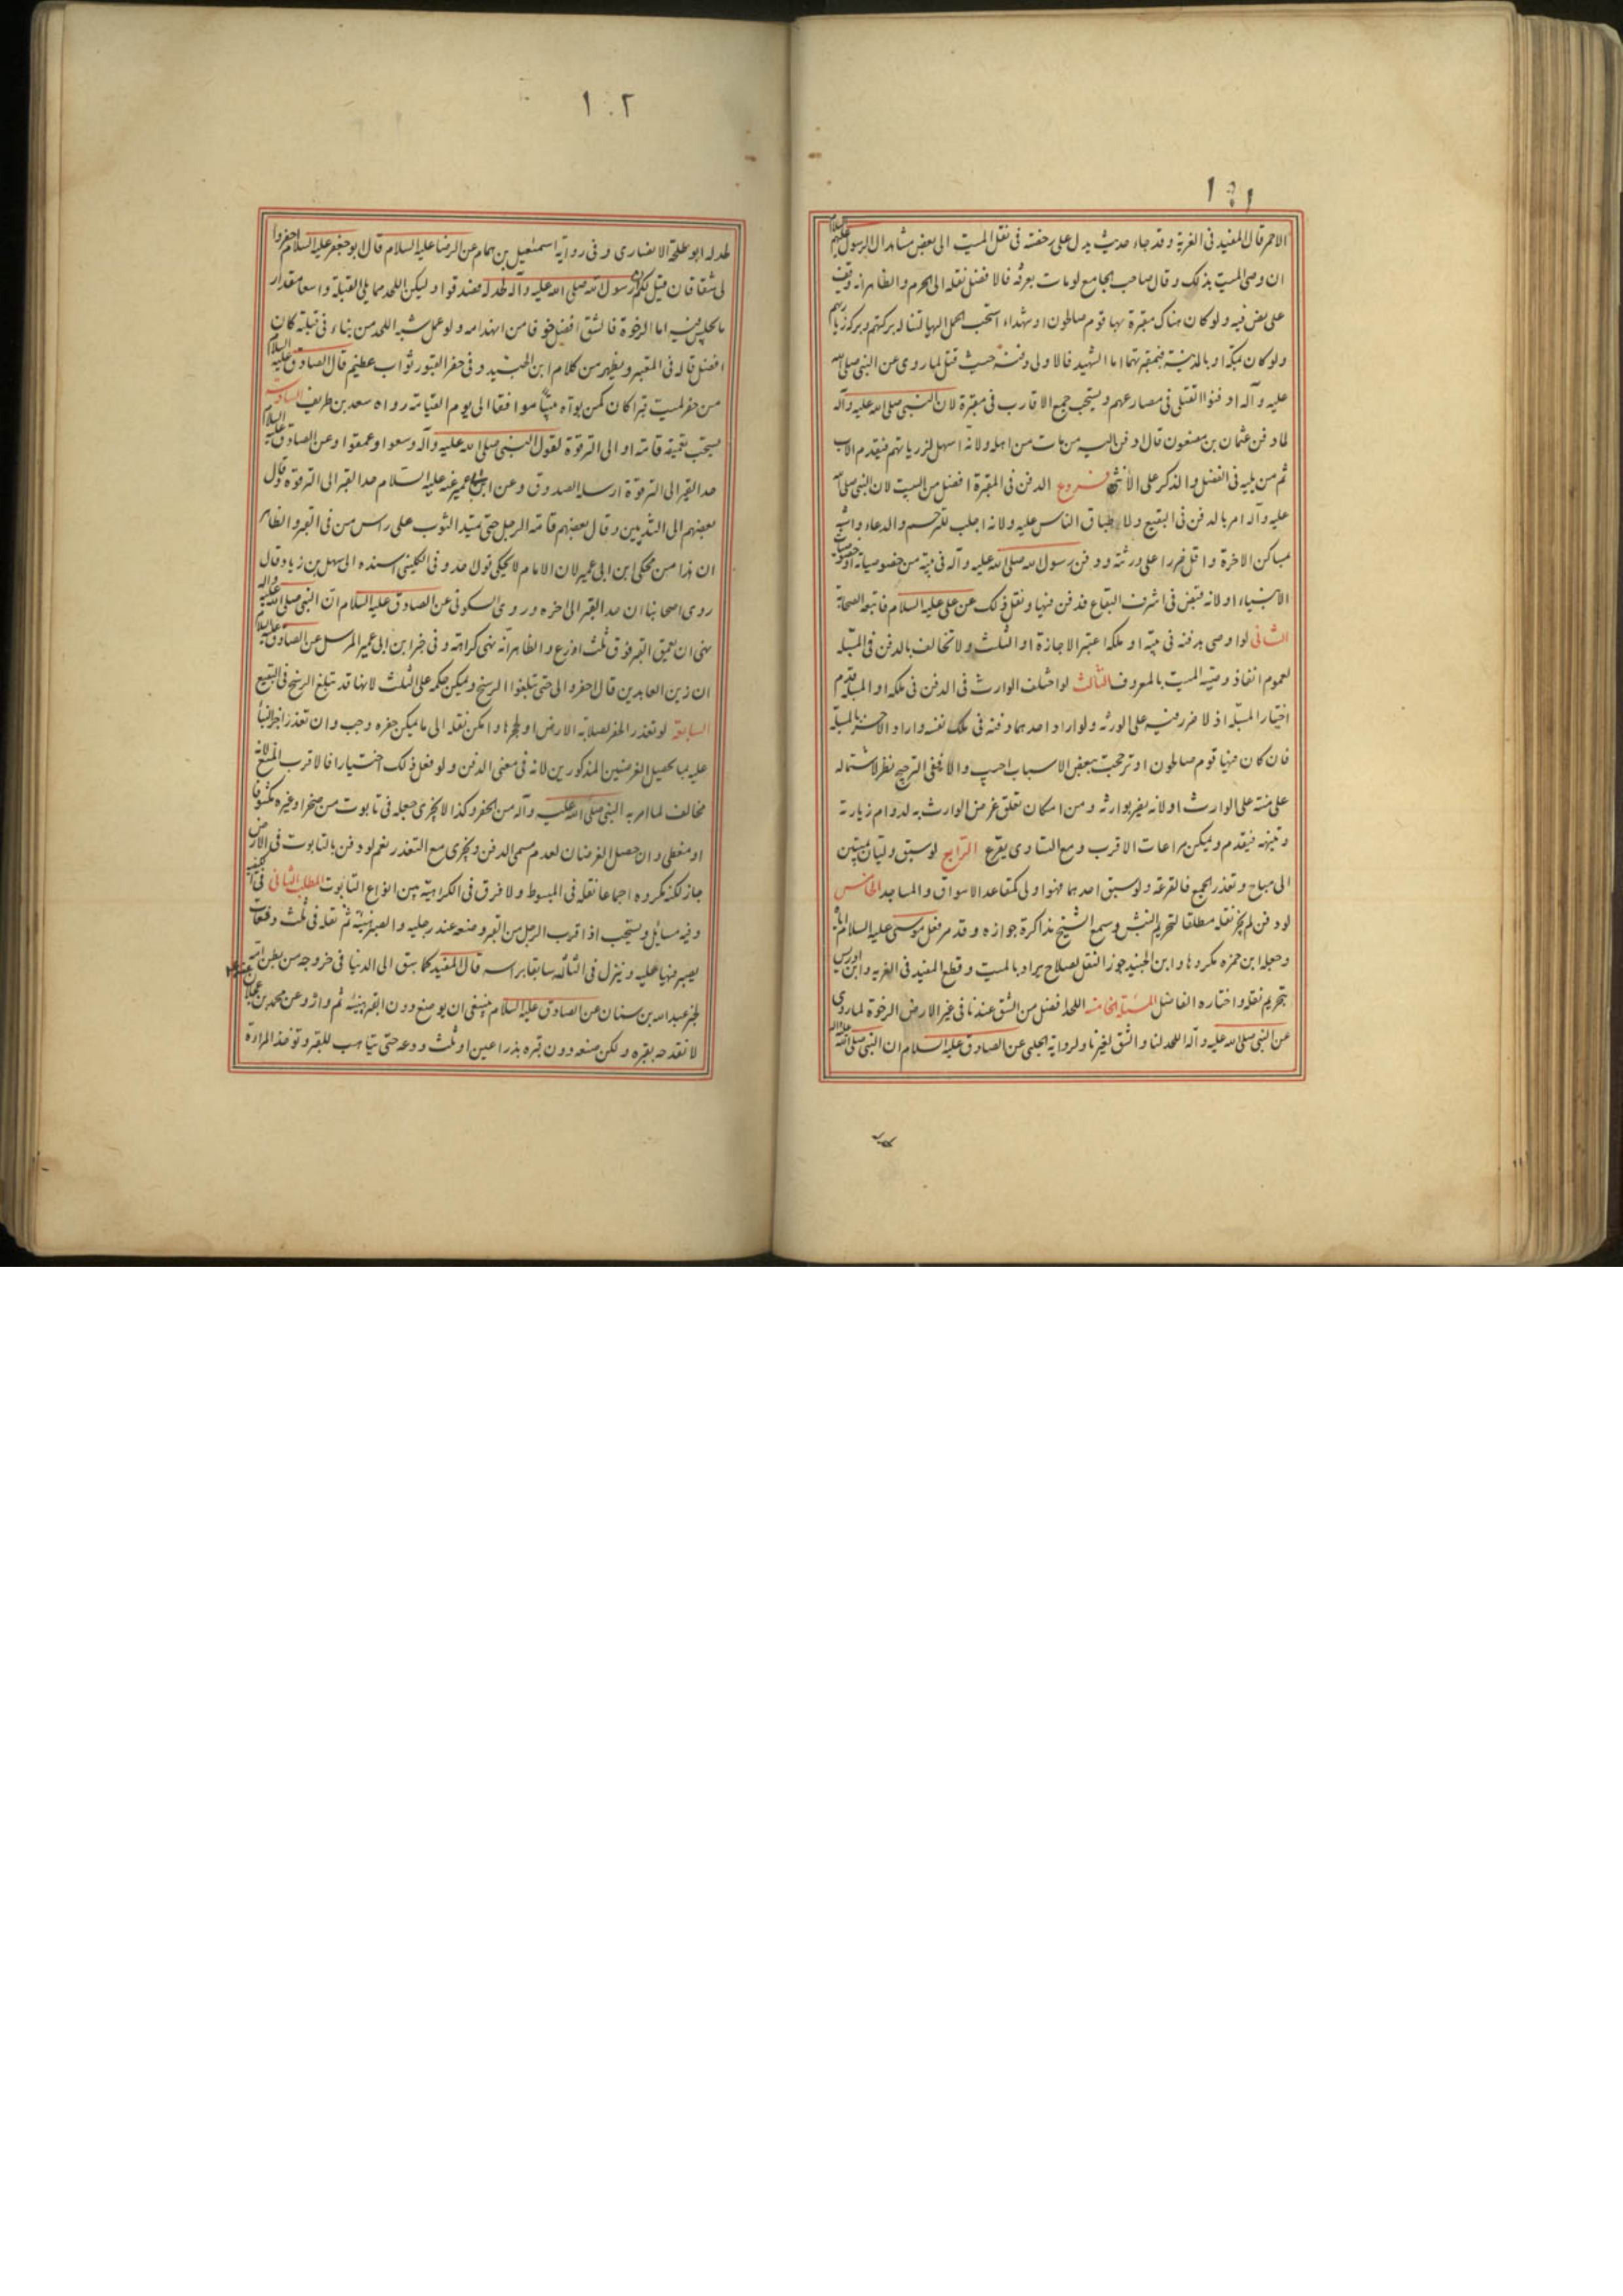 ١٠١
الاحمر قال المفيد فى الغرية و قد جاء حديث يدل على رخصة فى نقل الميت الى بعض مشاهد ال الرسول عليهم السلام
ان وصى الميت بذلك و قال صاحب الجامع لو مات بعرفة فالافضل نقله الى الحرم و الظاهر انه وقف
على نص فيه ولو كان هناك مقبرة بها قوم صالحون او شهداء استحب الحمل اليها لتناله بركتهم و بركة زيارتهم
ولو كان بمكة او بالمدينة فبمقبرتهما اما الشهيد فالاولى دفنه حيث قتل لما روى عن النبى صلى الله
عليه و آله ادفنوا القتلى فى مصارعهم و يستحب جمع الاقارب فى مقبرة لان النبى صلى الله عليه و آله
لما دفن عثمان بن مضعون قال ادفن اليه من مات من اهله و لانه اسهل لزيارتهم فيقدم الاب
ثم من يليه فى الفضل و الذكر على الانثى فروع الدفن فى المقبرة افضل من البيت لان النبى صلى الله
عليه و آله امر بالدفن فى البقيع و لاطباق الناس عليه و لانه اجلب للترحم و الدعاء و اشبه
بمساكن الاخرة و اقل ضررا على ورثته و دفن رسول الله صلى الله عليه و آله فى بيته من خصوصياته او خصوصيات
الانبياء او لانه قبض فى اشرف البقاع فدفن فيها و نقل ذلك عن على عليه السلام فاتبعه الصحابة
الثانى لو اوصى بدفنه فى بيته او ملكه اعتبر الاجازة او الثلث و لا تخالف بالدفن فى المسبلة
لعموم انفاذ وصية الميت بالمعروف الثالث لو اختلف الوارث فى الدفن فى ملكه او المسبلة قدم
اختيار المسبلة اذ لا ضرر فيه على الورثة و لو اراد احدهما دفنه فى ملك نفسه و اراد الاخر المسبلة
فان كان فيها قوم صالحون او ترجحت ببعض الاسباب اجيب و الا ففى الترجيح نظر لاشتماله
على منة على الوارث او لانه يضر بوارثه و من امكان تعلق غرض الوارث به لدوام زيارته
و تنبيهه فيقدم و يمكن مراعات الاقرب و مع التساوى يقرع الرابع لو سبق وليان بميتين
الى مباح و تعذر الجمع فالقرعة و لو سبق احدهما فهو اولى كمقاعد الاسواق و المساجد الخامس
لو دفن لم يجز نقله مطلقا لتحريم النبش و سمع الشيخ مذاكرة جوازه و قد مر فعل موسى عليه السلام اياه
و جعله ابن حمزه مكروها و ابن الجنيد جوز النقل لصلاح يراد بالميت و قطع المفيد فى الغرية و ابن ادريس
بتحريم نقله و اختاره الفاضل المسئلة الخامسة اللحد افضل من الشق عندنا فى غير الارض الرخوة لما روى
عن النبى صلى الله عليه و آله اللحد لنا و الشق لغيرنا و لرواية الحلبى عن الصادق عليه السلام ان النبى صلى الله عليه و اله
١٠٢
لحد له ابو طلحة الانصارى و فى رواية اسمعيل بن همام عن الرضا عليه السلام قال ابو جعفر عليه السلام احفروا
لى شقا فان قيل لكم ان رسول الله صلى الله عليه و آله لحد له فصدقوا و ليكن اللحد مما يلى القبلة واسعا مقدار
ما يجلس فيه اما الرخوة فالشق افضل خوفا من انهدامه و لو عمل شبه اللحد من بناء فى قبلته كان
افضل قاله فى المعتبر و يظهر من كلام ابن الجنيد و فى حفر القبور ثواب عظيم قال الصادق عليه السلام
من حفر لميت قبرا كان كمن بوآه بيتا موافقا الى يوم القيامة رواه سعد بن طريف السادسة
يستحب تعميقه قامة او الى الترقوة لقول النبى صلى الله عليه و آله وسعوا و عمقوا و عن الصادق عليه السلام
حد القبر الى الترقوة ارسله الصدوق و عن ابن ابى عمير عنه عليه السلام حد القبر الى الترقوة و قال
بعضهم الى الثديين و قال بعضهم قامة الرجل حتى يمد الثوب على راس من فى القبر و الظاهر
ان هذا من محكى ابن ابى عمير لان الامام لا يحكى قول احد و فى الكلينى اسنده الى سهل بن زياد و قال
روى اصحابنا ان حد القبر الى اخره و روى السكونى عن الصادق عليه السلام ان النبى صلى الله عليه و اله
نهى ان يعمق القبر فوق ثلث اذرع و الظاهر انه نهى كراهة و فى خبر ابن ابى عمير المرسل عن الصادق عليه السلام
ان زين العابدين قال احفروا لى حتى تبلغوا الرشح و يمكن حمله على الثلث لانها قد تبلغ الرشح فى البقيع
السابعة لو تعذر الحفر لصلابة الارض او لحجرها و امكن نقله الى ما يمكن حفره وجب و ان تعذر اجزأ البناء
عليه بما يحصل الغرضين المذكورين لانه فى معنى الدفن و لو فعل ذلك اختيارا فالاقرب المنع لانه
مخالف لما امر به النبى صلى الله عليه و آله من الحفر و كذا لا يجزى جعله فى تابوت من صخر او غيره مكشوفا
او مغطى و ان حصل الغرضان لعدم مسمى الدفن و يجزى مع التعذر نعم لو دفن بالتابوت فى الارض
جاز لكنه مكروه اجماعا نقله فى المبسوط و لا فرق فى الكراهية بين انواع التابوت المطلب الثانى فى كيفيته
و فيه مسائل و يستحب اذا قرب الرجل من القبر وضعه عند رجليه و الصبر هنيئة ثم نقله فى ثلث دفعات
يصبر فيها عليه و ينزل فى الثالثة سابقا براسه قال المفيد كما سبق الى الدنيا فى خروجه من بطن امه
لخبر عبد الله بن سنان عن الصادق عليه السلام ينبغى ان يوضع دون القبر هنيئة ثم واره و عن محمد بن عجلان
لا تفدحه بقبره و لكن ضعه دون قبره بذراعين او ثلث و دعه حتى يتاهب للقبر و تؤخذ المراة